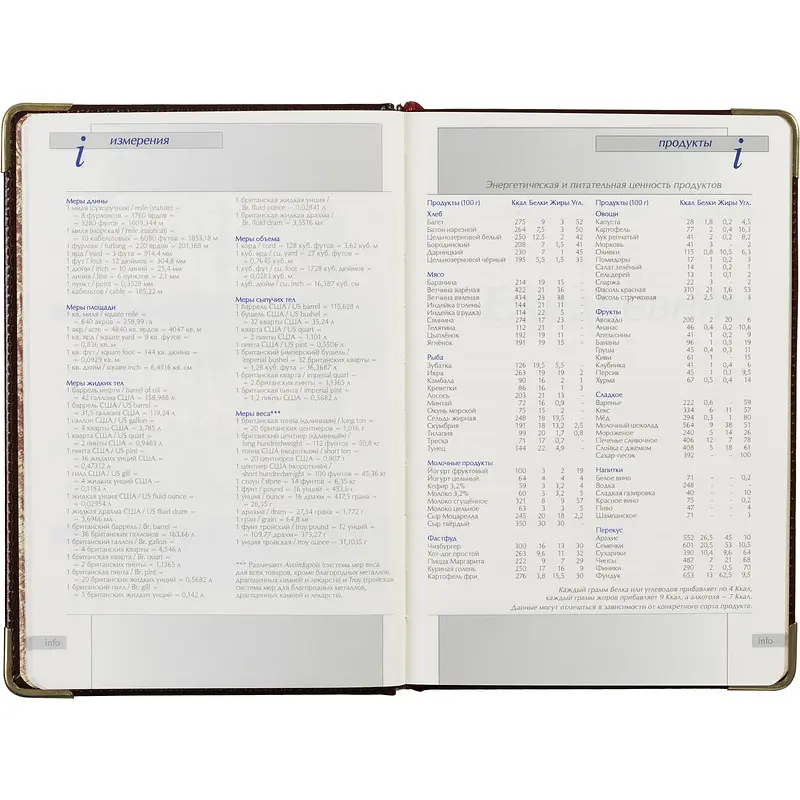 i измерения
Меры длины
1 миля (сухопутная) / mile (statute) =
= 8 фурлонгов = 1760 ярдов =
= 5280 футов = 1609,344 м
1 миля (морская) / mile (nautical) =
= 10 кабельтовых = 6080 футов = 1853,18 м
1 фурлонг / furlong = 220 ярдов = 201,168 м
1 ярд / yard = 3 фута = 914,4 мм
1 фут / foot = 12 дюймов = 304,8 мм
1 дюйм / inch = 10 линий = 25,4 мм
1 линия / line = 6 пунктов = 2,1 мм
1 пункт / point = 0,3528 мм
1 кабельтов / cable = 185,22 м
Меры площади
1 кв. миля / square mile =
= 640 акров = 258,99 га
1 акр / acre = 4840 кв. ярдов = 4047 кв. м
1 кв. ярд / square yard = 9 кв. футов =
= 0,836 кв. м
1 кв. фут / square foot = 144 кв. дюйма =
= 0,0929 кв. м
1 кв. дюйм / square inch = 6,4516 кв. см
Меры жидких тел
1 баррель нефти / barrel of oil =
= 42 галлона США = 158,988 л
1 баррель США / US barrel =
= 31,5 галлона США = 119,24 л
1 галлон США / US gallon =
= 4 кварты США = 3,785 л
1 кварта США / US quart =
= 2 пинты США = 0,9463 л
1 пинта США / US pint =
= 16 жидких унций США =
= 0,47312 л
1 гилл США / US gill =
= 4 жидких унций США =
= 0,1183 л
1 жидкая унция США / US fluid ounce =
= 0,02954 л
1 жидкая драхма США / US fluid dram =
= 3,6966 мл
1 британский баррель / Br. barrel =
= 36 британских галлонов = 163,66 л
1 британский галлон / Br. gallon =
= 4 британских кварты = 4,546 л
1 британская кварта / Br. quart =
= 2 британских пинты = 1,1365 л
1 британская пинта / Br. pint =
= 20 британских жидких унций = 0,5682 л
1 британский гилл / Br. gill =
= 5 британских жидких унций = 0,142 л
1 британская жидкая унция /
Br. fluid ounce = 0,02841 л
1 британская жидкая драхма /
Br. fluid dram = 3,5516 мл
Меры объема
1 корд / curd = 128 куб. футов = 3,62 куб. м
1 куб. ярд / cu. yard = 27 куб. футов =
= 0,7645 куб. м
1 куб. фут / cu. foot = 1728 куб. дюймов =
= 0,0283 куб. м
1 куб. дюйм / cu. inch = 16,387 куб. см
Меры сыпучих тел
1 баррель США / US barrel = 115,628 л
1 бушель США / US bushel =
= 32 кварты США = 35,24 л
1 кварта США / US quart =
= 2 пинты США = 1,101 л
1 пинта США / US pint = 0,5506 л
1 британский (имперский) бушель /
imperial bushel = 32 британских кварты =
= 1,28 куб. фута = 36,3687 л
1 британская кварта / imperial quart =
= 2 британских пинты = 1,1365 л
1 британская пинта / imperial pint =
= 1,2 пинты США = 0,5682 л
Меры веса***
1 британская тонна (длинная) / long ton =
= 20 британских центнеров = 1,016 т
1 британский центнер (длинный) /
long hundredweight = 112 фунтов = 50,8 кг
1 тонна США (короткая) / short ton =
= 20 центнеров США = 0,907 т
1 центнер США (короткий) /
short hundredweight = 100 фунтов = 45,36 кг
1 стоун / stone = 14 фунтов = 6,35 кг
1 фунт / pound = 16 унций = 453,6 г
1 унция / ounce = 16 драхм = 437,5 грана =
= 28,35 г
1 драхма / dram = 27,34 грана = 1,772 г
1 гран / grain = 64,8 мг
1 фунт тройский / troy pound = 12 унций =
= 109,77 драхм = 373,27 г
1 унция тройская / troy ounce = 31,1035 г
*** Различают Avoirdupois (система мер веса
для всех товаров, кроме благородных металлов,
драгоценных камней и лекарств) и Troy (тройская
система мер для благородных металлов,
драгоценных камней и лекарств).
info
продукты i
Энергетическая и питательная ценность продуктов
Продукты (100 г) Ккал Белки Жиры Угл.
Хлеб
Багет 275 9 3 52
Батон нарезной 264 7,5 3 50
Цельнозерновой белый 250 12,5 2 42
Бородинский 208 7 1,5 41
Дарницкий 230 7 1 45
Цельнозерновой чёрный 195 5,5 1,5 35
Мясо
Баранина 214 19 15 -
Ветчина варёная 422 21 36 -
Ветчина вяленая 434 23 38 -
Индейка (голень) 144 21 11 -
Индейка (грудка) 114 22 5 -
Свинина 274 17 23 -
Телятина 112 21 1 -
Цыплёнок 192 19 11 -
Ягнёнок 191 19 15 -
Рыба
Зубатка 126 19,5 5,5 -
Икра 263 19 19 2
Камбала 90 16 2 1
Креветки 86 16 1 3
Лосось 203 21 13 -
Минтай 72 16 0,9 -
Окунь морской 75 15 2 -
Сельдь жирная 248 18 19,5 -
Скумбрия 191 18 13,2 2,5
Тилапия 99 20 1,7 0,8
Треска 71 17 0,7 -
Тунец 144 22 4,9 -
Молочные продукты
Йогурт фруктовый 100 3 2 19
Йогурт цельный 64 4 4 4
Кефир 3,2% 59 3 3,2 4
Молоко 3,2% 60 3 3,2 5
Молоко сгущённое 321 8 9 57
Молоко цельное 63 3 3 5
Сыр Моцарелла 245 20 18 2,2
Сыр твёрдый 350 30 30 -
Фастфуд
Чизбургер 300 16 13 30
Хот-дог простой 263 9,6 11 32
Пицца Маргарита 222 9 7 29
Куриная голень 250 17 16 9
Картофель фри 276 3,8 15,5 30
Продукты (100 г) Ккал Белки Жиры Угл.
Овощи
Капуста 28 1,8 0,2 4,5
Картофель 77 2 0,4 16,3
Лук репчатый 41 2 0,2 8,2
Морковь 41 3 - 2
Оливки 115 0,8 10,5 6,3
Помидоры 17 1 0,2 3
Салат зелёный 14 1 0,2 1
Сельдерей 13 1 0,1 2
Спаржа 22 3 - 2
Фасоль красная 310 21 1,6 53
Фасоль стручковая 23 2,5 0,3 3
Фрукты
Авокадо 200 2 20 6
Ананас 46 0,4 0,2 10,6
Апельсины 41 1 0,2 9
Бананы 96 1 0,5 19
Груша 45 0,4 0,3 11
Киви 61 1 - 15
Клубника 41 1 0,4 6
Персик 45 1 0,1 9,5
Хурма 67 0,5 0,4 14
Сладкое
Варенье 222 0,6 - 59
Кекс 334 6 11 57
Мёд 294 0,3 1 80
Молочный шоколад 564 9 38 51
Мороженое 240 5 14 26
Печенье сливочное 406 12 7 78
Слойка с джемом 408 5 18 61
Сахар-песок 392 - - 100
Напитки
Белое вино 71 - - 0,2
Водка 248 - - -
Сладкая газировка 40 - - 10
Красное вино 75 - - 0,2
Пиво 47 - - 4
Шампанское 71 - - 3
Перекус
Арахис 552 26,5 45 10
Семечки 601 20,5 53 10,5
Сухарики 390 10,4 9,6 64
Чипсы 487 7 21 68
Финики 290 2 0,5 70
Фундук 653 13 62,5 9,5
Каждый грамм белка или углеводов прибавляет по 4 Ккал,
каждый грамм жиров прибавляет 9 Ккал, а алкоголя – 7 Ккал.
Данные могут отличаться в зависимости от конкретного сорта продукта.
info